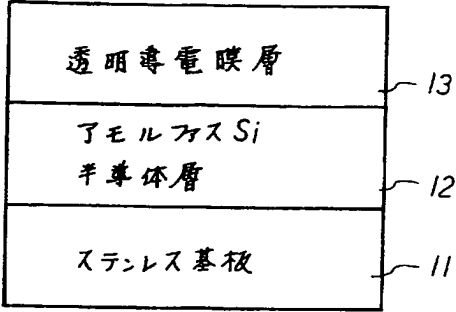 透明導電膜層
13
アモルファスSi
半導体層
12
ステンレス基板
11